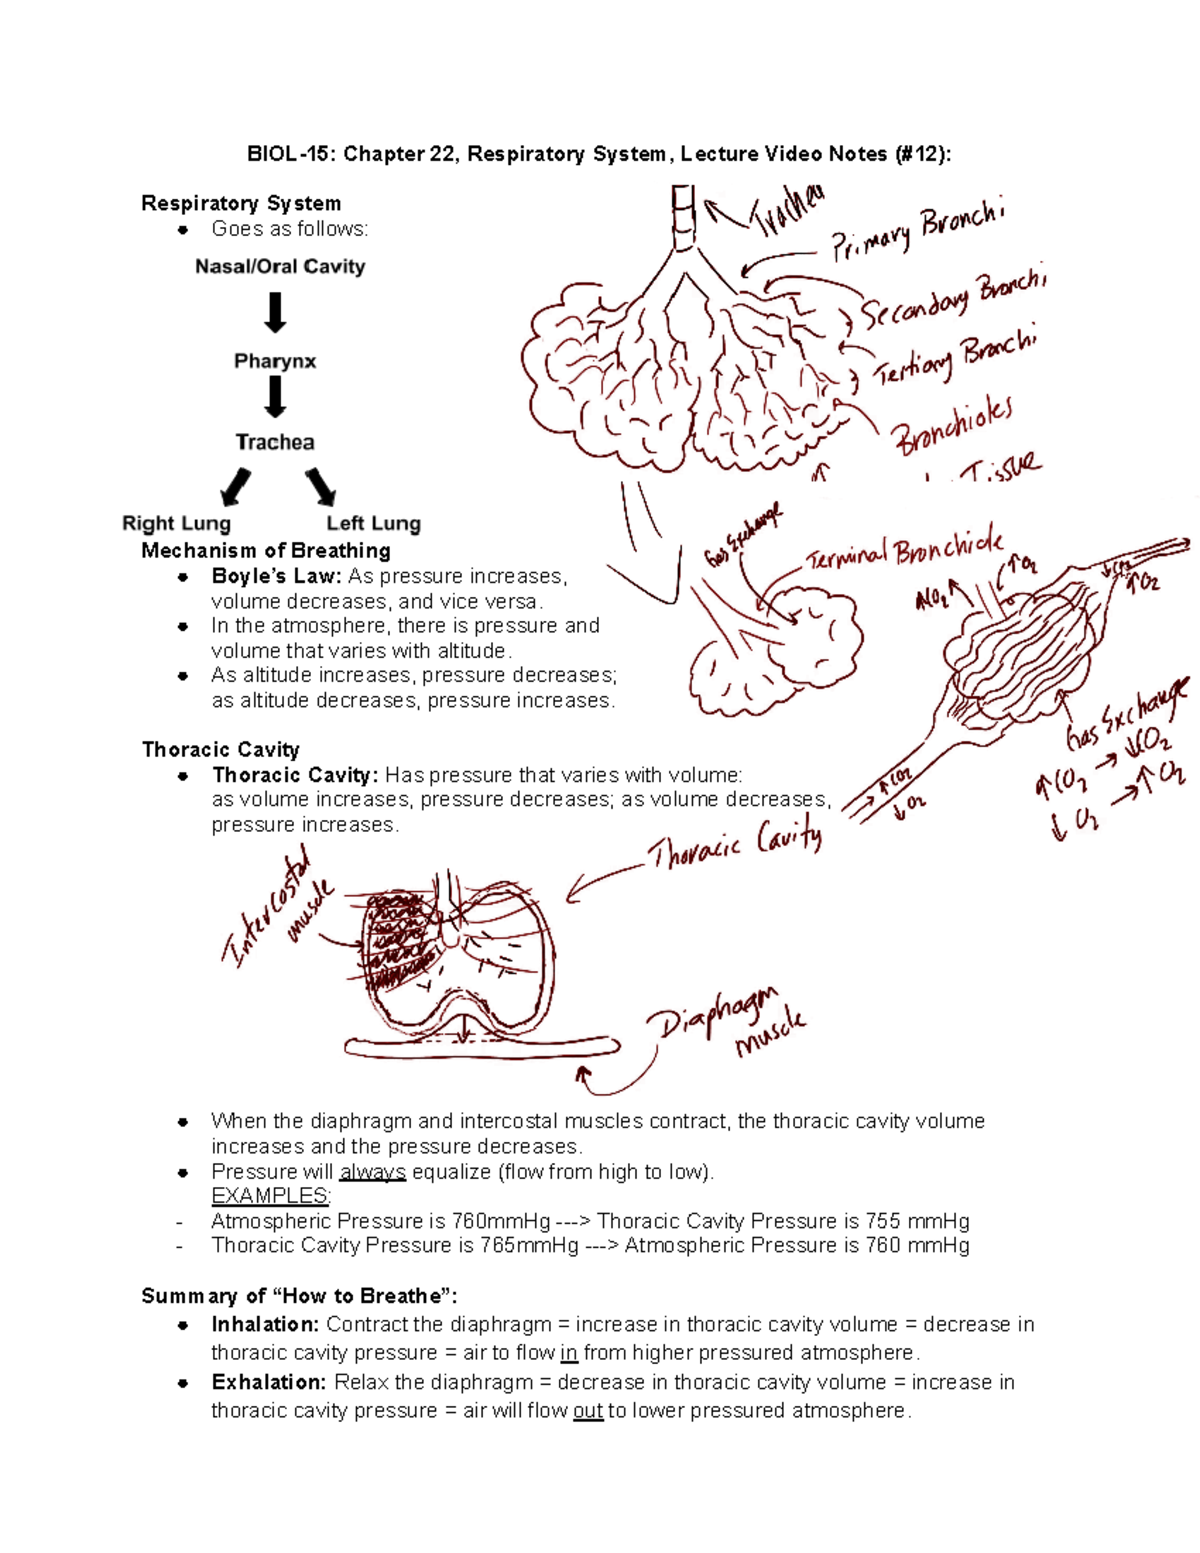 BIOL-15: Chapter 22, Respiratory System, Lecture Video Notes (#12):
Respiratory System
● Goes as follows:
Nasal/Oral Cavity
Pharynx
Trachea
Right Lung
Left Lung
Trachea
Primary Bronchi
Secondary Bronchi
Tertiary Bronchi
Bronchioles
Tissue
Mechanism of Breathing
● Boyle's Law: As pressure increases,
volume decreases, and vice versa.
● In the atmosphere, there is pressure and
volume that varies with altitude.
● As altitude increases, pressure decreases;
as altitude decreases, pressure increases.
Gas Exchange
Terminal Bronchiole
↑O₂
↓CO₂
↑O₂
Gas Exchange
↑CO₂ → ↓CO₂
↓O₂ → ↑O₂
↑CO₂
↓O₂
Thoracic Cavity
● Thoracic Cavity: Has pressure that varies with volume:
as volume increases, pressure decreases; as volume decreases,
pressure increases.
Thoracic Cavity
Intercostal
muscle
Diaphragm
muscle
● When the diaphragm and intercostal muscles contract, the thoracic cavity volume
increases and the pressure decreases.
● Pressure will always equalize (flow from high to low).
EXAMPLES:
- Atmospheric Pressure is 760mmHg ---> Thoracic Cavity Pressure is 755 mmHg
- Thoracic Cavity Pressure is 765mmHg ---> Atmospheric Pressure is 760 mmHg
Summary of “How to Breathe”:
● Inhalation: Contract the diaphragm = increase in thoracic cavity volume = decrease in
thoracic cavity pressure = air to flow in from higher pressured atmosphere.
● Exhalation: Relax the diaphragm = decrease in thoracic cavity volume = increase in
thoracic cavity pressure = air will flow out to lower pressured atmosphere.